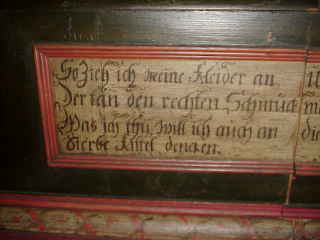 So Zieh ich meine Kleider an
Der kan den rechten Schmuck
Was ich thu Will ich auch an
Sterbe Kittel dencken.
die